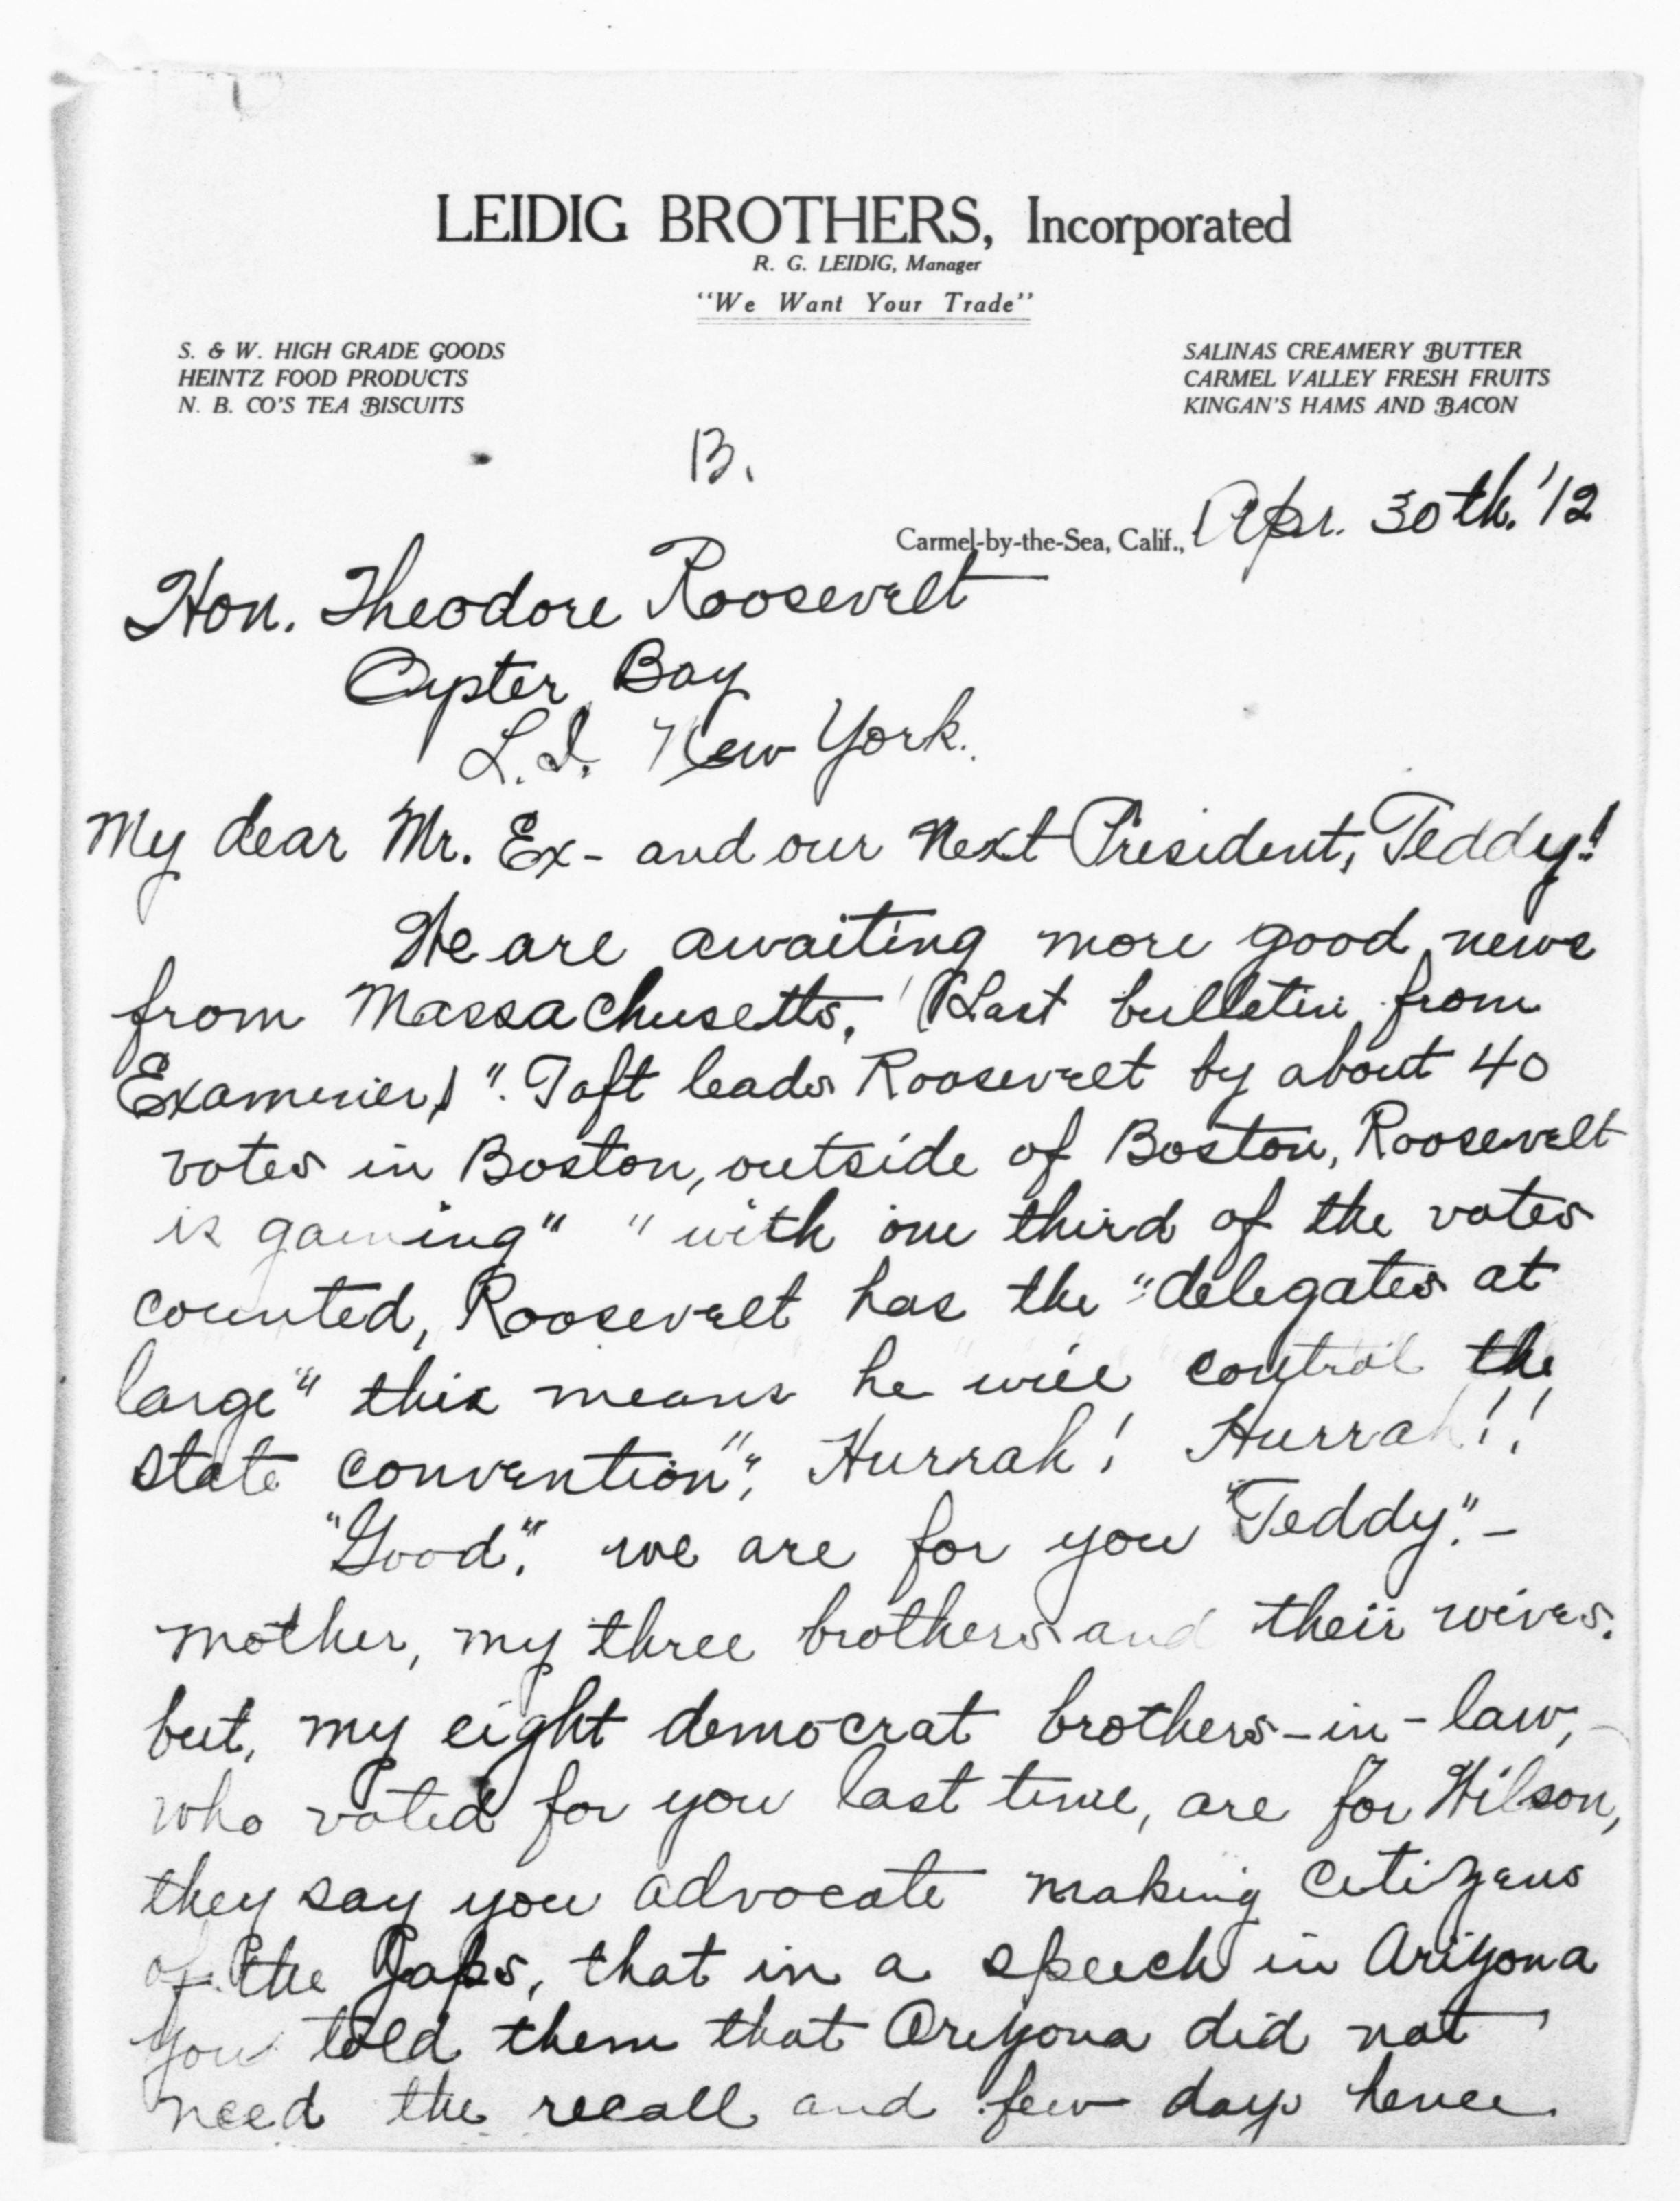 LEIDIG BROTHERS, Incorporated
R. G. LEIDIG, Manager
"We Want Your Trade"
S. & W. HIGH GRADE GOODS
HEINTZ FOOD PRODUCTS
N. B. CO'S TEA BISCUITS
SALINAS CREAMERY BUTTER
CARMEL VALLEY FRESH FRUITS
KINGAN'S HAMS AND BACON
B.
Carmel-by-the-Sea, Calif., Apr. 30th. '12
Hon. Theodore Roosevelt
Oyster Bay
L.I. New York.
My dear Mr. Ex- and our Next President, Teddy!
We are awaiting more good news
from Massachusetts. (Last bulletin from
Examiner) "Taft leads Roosevelt by about 40
votes in Boston, outside of Boston, Roosevelt
is gaining" "with one third of the votes
counted, Roosevelt has the "delegates at
large" this means he will control the
state convention", Hurrah! Hurrah!!
"Good". we are for you "Teddy".-
mother, my three brothers and their wives.
but, my eight democrat brothers-in-law,-
who voted for you last time, are for Wilson,
they say you advocate making Citizens
of the Japs, that in a speech in Arizona
you told them that Arizona did not
need the recall and few days hence